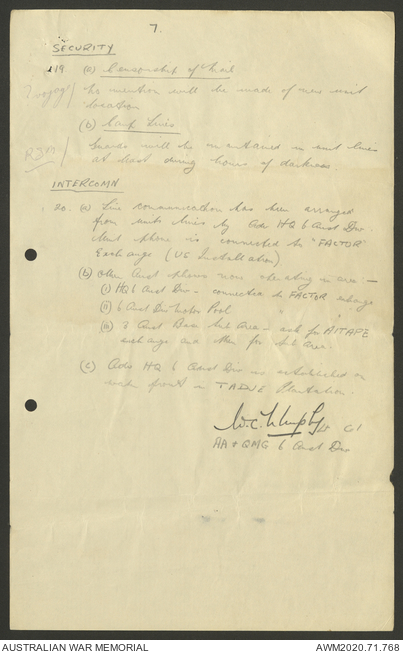 7.
SECURITY
19. (a) Censorship of Mail
No mention will be made of new unit
location
(b) Camp Lines
Guards will be maintained in unit lines
at least during hours of darkness.
INTERCOMN
20. (a) Line communication has been arranged
from units lines by Adv HQ 6 Aust Div.
Unit phone is connected to "FACTOR"
Exchange (US Installation)
(b) Other Aust phones now operating in area :-
(i) HQ 6 Aust Div - connected to FACTOR exchange
(ii) 6 Aust Div Motor Pool " "
(iii) 3 Aust Base Sub Area - ask for AITAPE
exchange and then for sub area.
(c) Adv HQ 6 Aust Div is established on
front in TADJI Plantation.
W.C.
AA & QMG 6 Aust Div
AUSTRALIAN WAR MEMORIAL
AWM2020.71.768